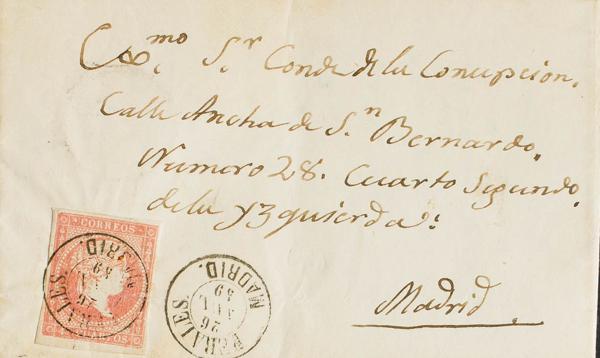 Exmo. Sr Conde de la Concepcion.
Calle Ancha de Sn. Bernardo.
Numero 28. Cuarto Segundo.
de la Yzquierda.
Madrid.
CORREOS
PERALES
MADRID.
26
59